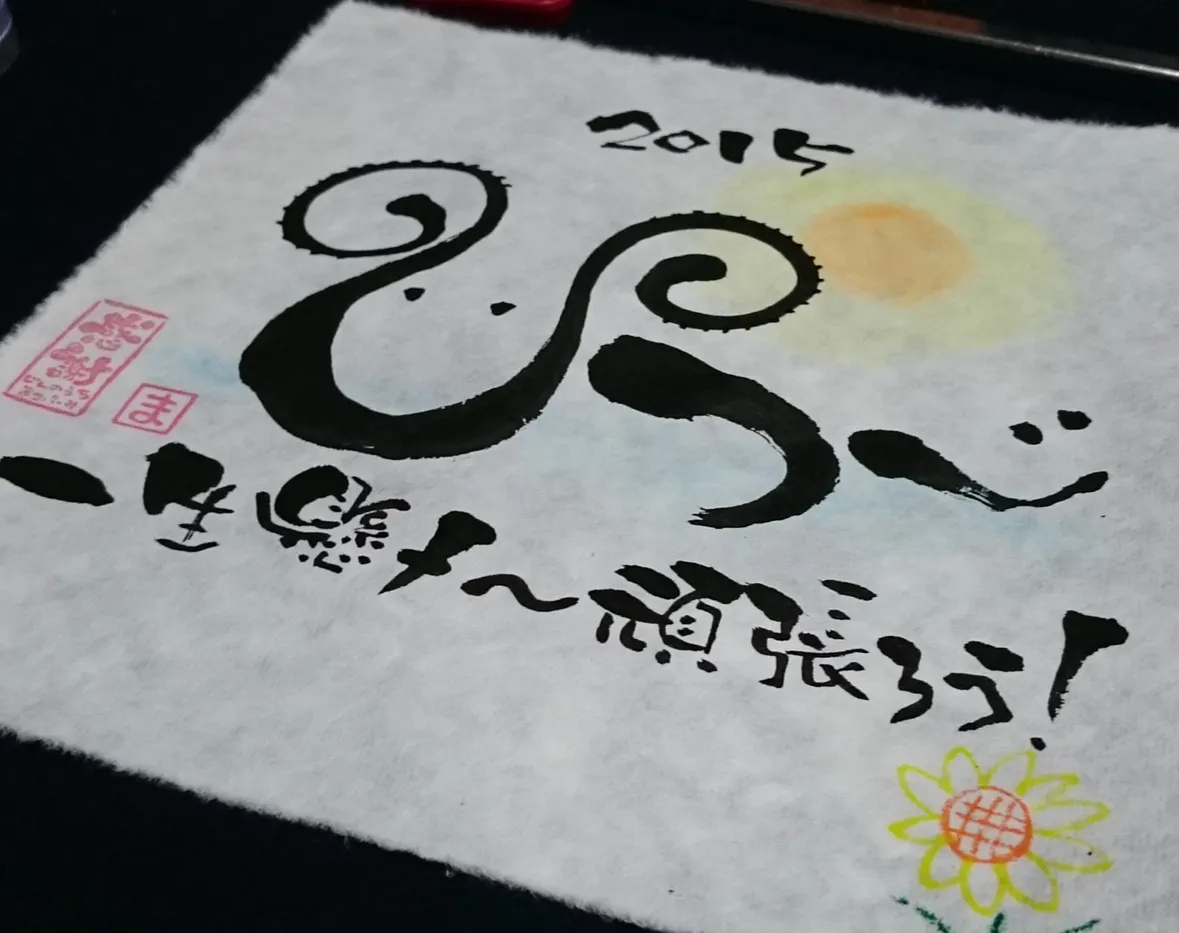 2015
ひつじ
一生懸メ〜頑張ろう!
感謝
ま